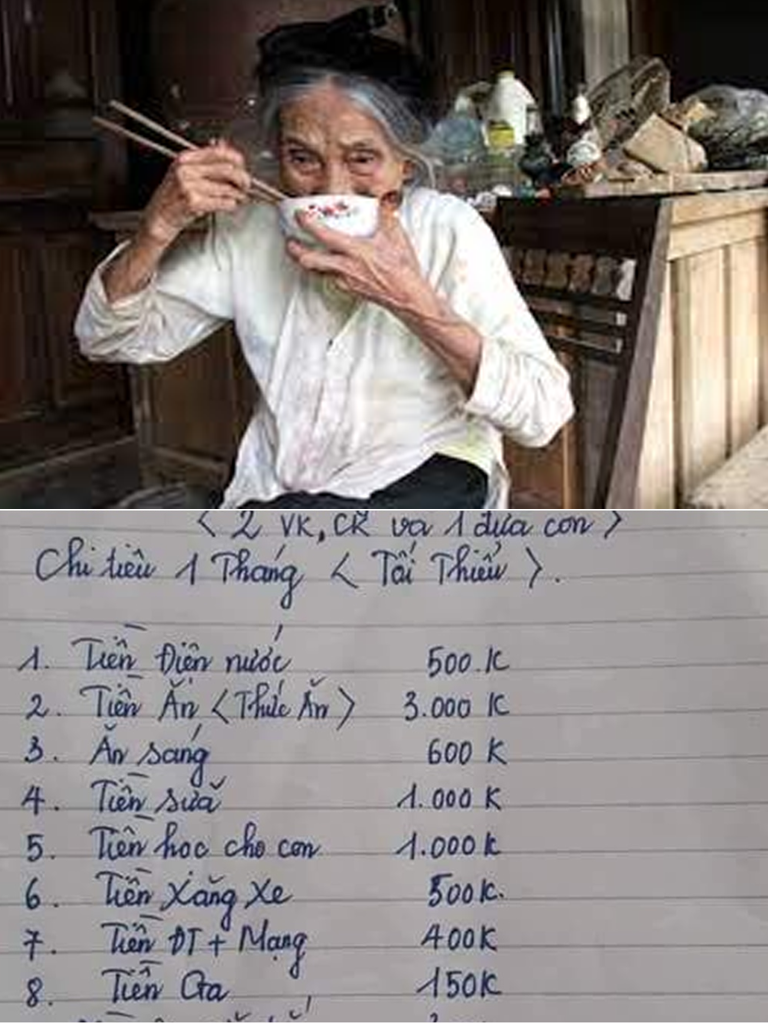 < 2 VK, CK và 1 đứa con >
Chi tiêu 1 Tháng < Tối Thiểu >.
1. Tiền Điện nước 500.K
2. Tiền Ăn < Thức Ăn > 3.000 K
3. Ăn sáng 600 K
4. Tiền sữa 1.000 K
5. Tiền học cho con 1.000 K
6. Tiền Xăng Xe 500K.
7. Tiền ĐT + Mạng 400K
8. Tiền Ga 150K